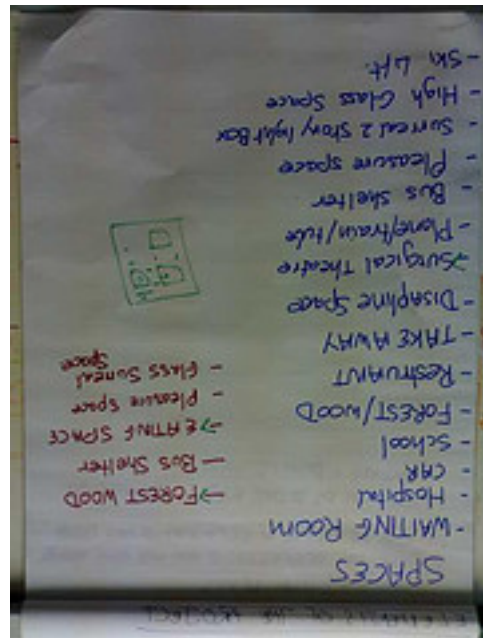 ELEMENTS OF THE PROJECT
SPACES
- WAITING ROOM
- Hospital
- CAR
- School
- FOREST/WOOD
- RESTRUANT
- TAKE AWAY
- Disapline Space
→ Surgical Theatre
- Plane/train/tube
- Bus Shelter
- Pleasure space
- Surreal 2 Story light Box
- High Glass Space
- Ski Lift.
→ FOREST WOOD
- Bus Shelter
→ EATING SPACE
- Pleasure space
- Glass Surreal
Space